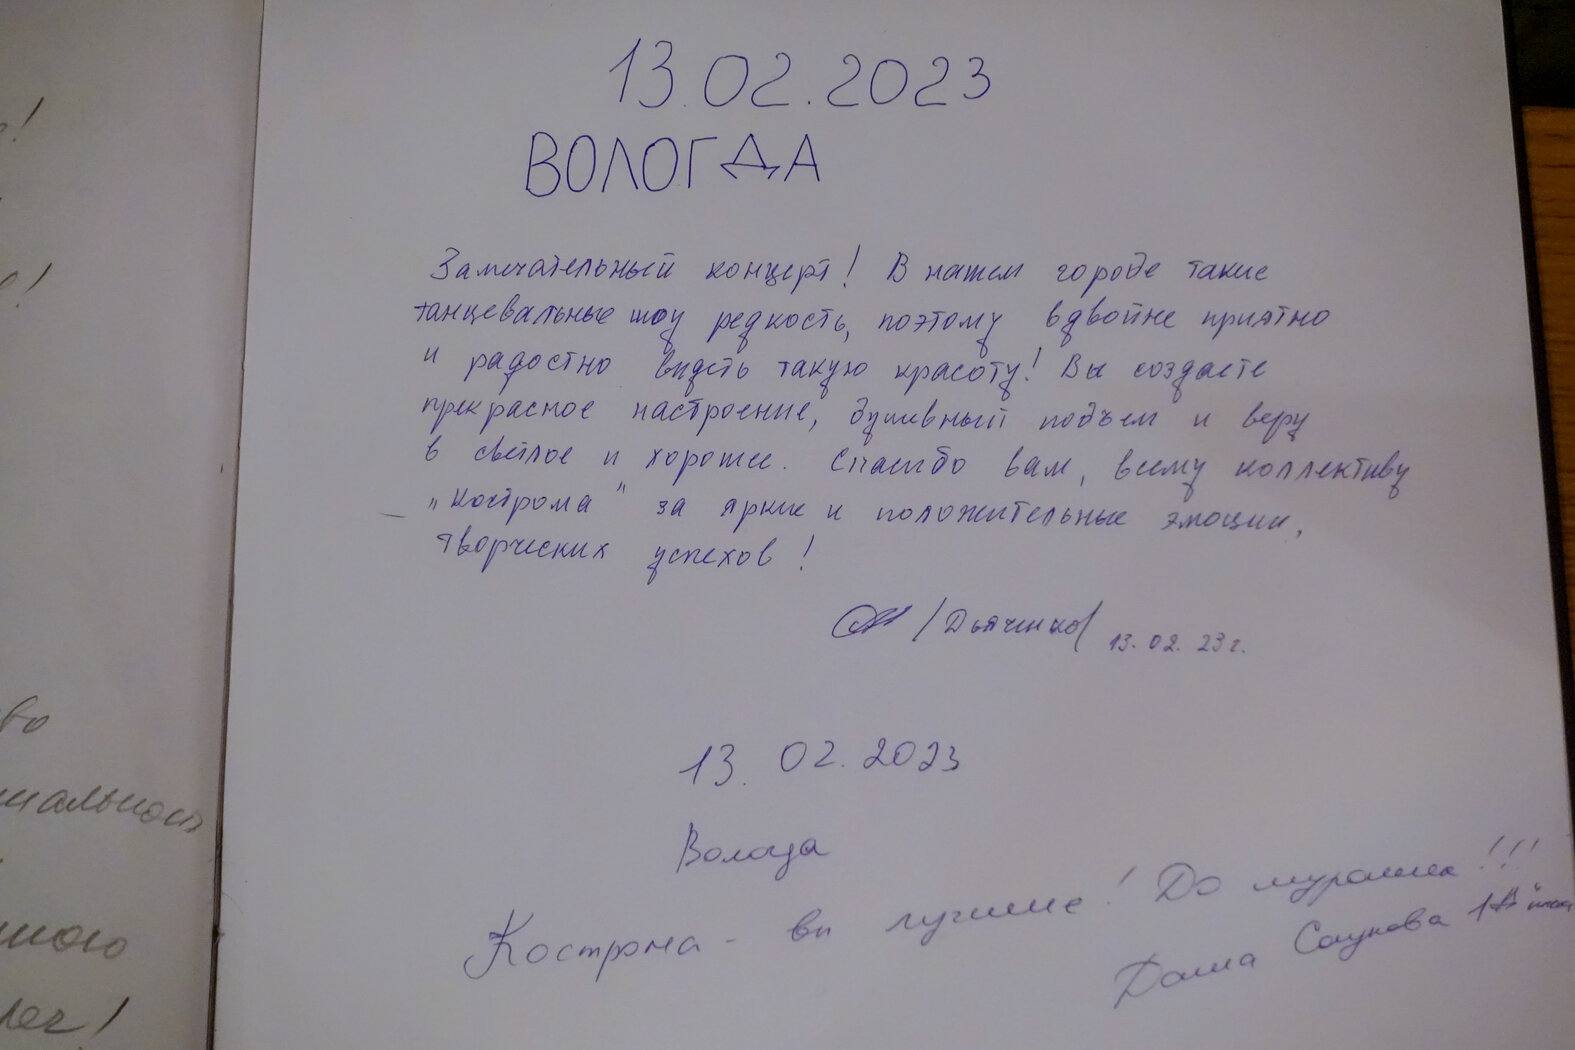 13.02.2023
ВОЛОГДА
Замечательный концерт! В нашем городе такие
танцевальные шоу редкость, поэтому вдвойне приятно
и радостно видеть такую красоту! Вы создаете
прекрасное настроение, душевный подъем и веру
в светлое и хорошее. Спасибо вам, всему коллективу
„Кострома" за яркие и положительные эмоции,
творческих успехов!
/Дьяченко/ 13.02.23г.
13.02.2023
Вологда
Кострома - вы лучшие! До мурашек!!!
Даша